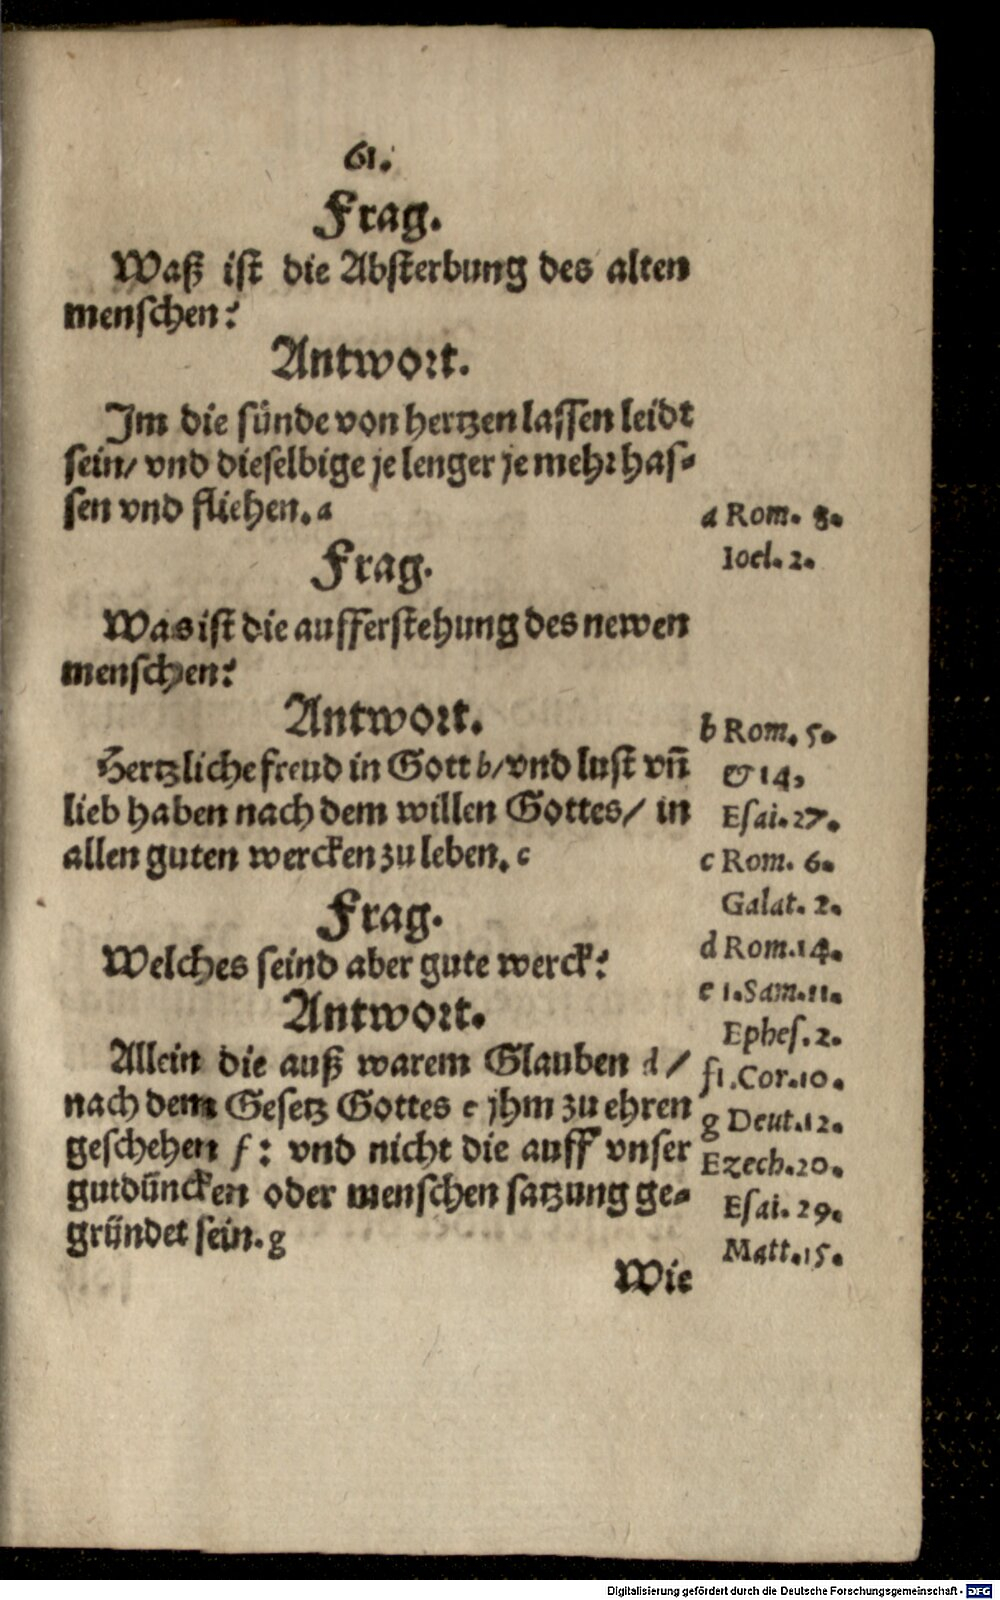 61.
Frag.
Waß ist die Absterbung des alten
menschen?
Antwort.
Jm die sünde von hertzen lassen leidt
sein/ vnd dieselbige je lenger je mehr has-
sen vnd fliehen. a
a Rom. 8.
Ioel. 2.
Frag.
Was ist die aufferstehung des newen
menschen?
Antwort.
Hertzliche freud in Gott b/ vnd lust vñ
lieb haben nach dem willen Gottes/ in
allen guten wercken zu leben. c
b Rom. 5.
& 14,
Esai. 27.
c Rom. 6.
Galat. 2.
Frag.
Welches seind aber gute werck?
Antwort.
Allein die auß warem Glauben d/
nach dem Gesetz Gottes e jhm zu ehren
geschehen f: vnd nicht die auff vnser
gutdüncken oder menschen satzung ge-
gründet sein. g
d Rom. 14.
e 1. Sam. 11.
Ephes. 2.
f 1. Cor. 10.
g Deut. 12.
Ezech. 20.
Esai. 29.
Matt. 15.
Wie
Digitalisierung gefördert durch die Deutsche Forschungsgemeinschaft - DFG